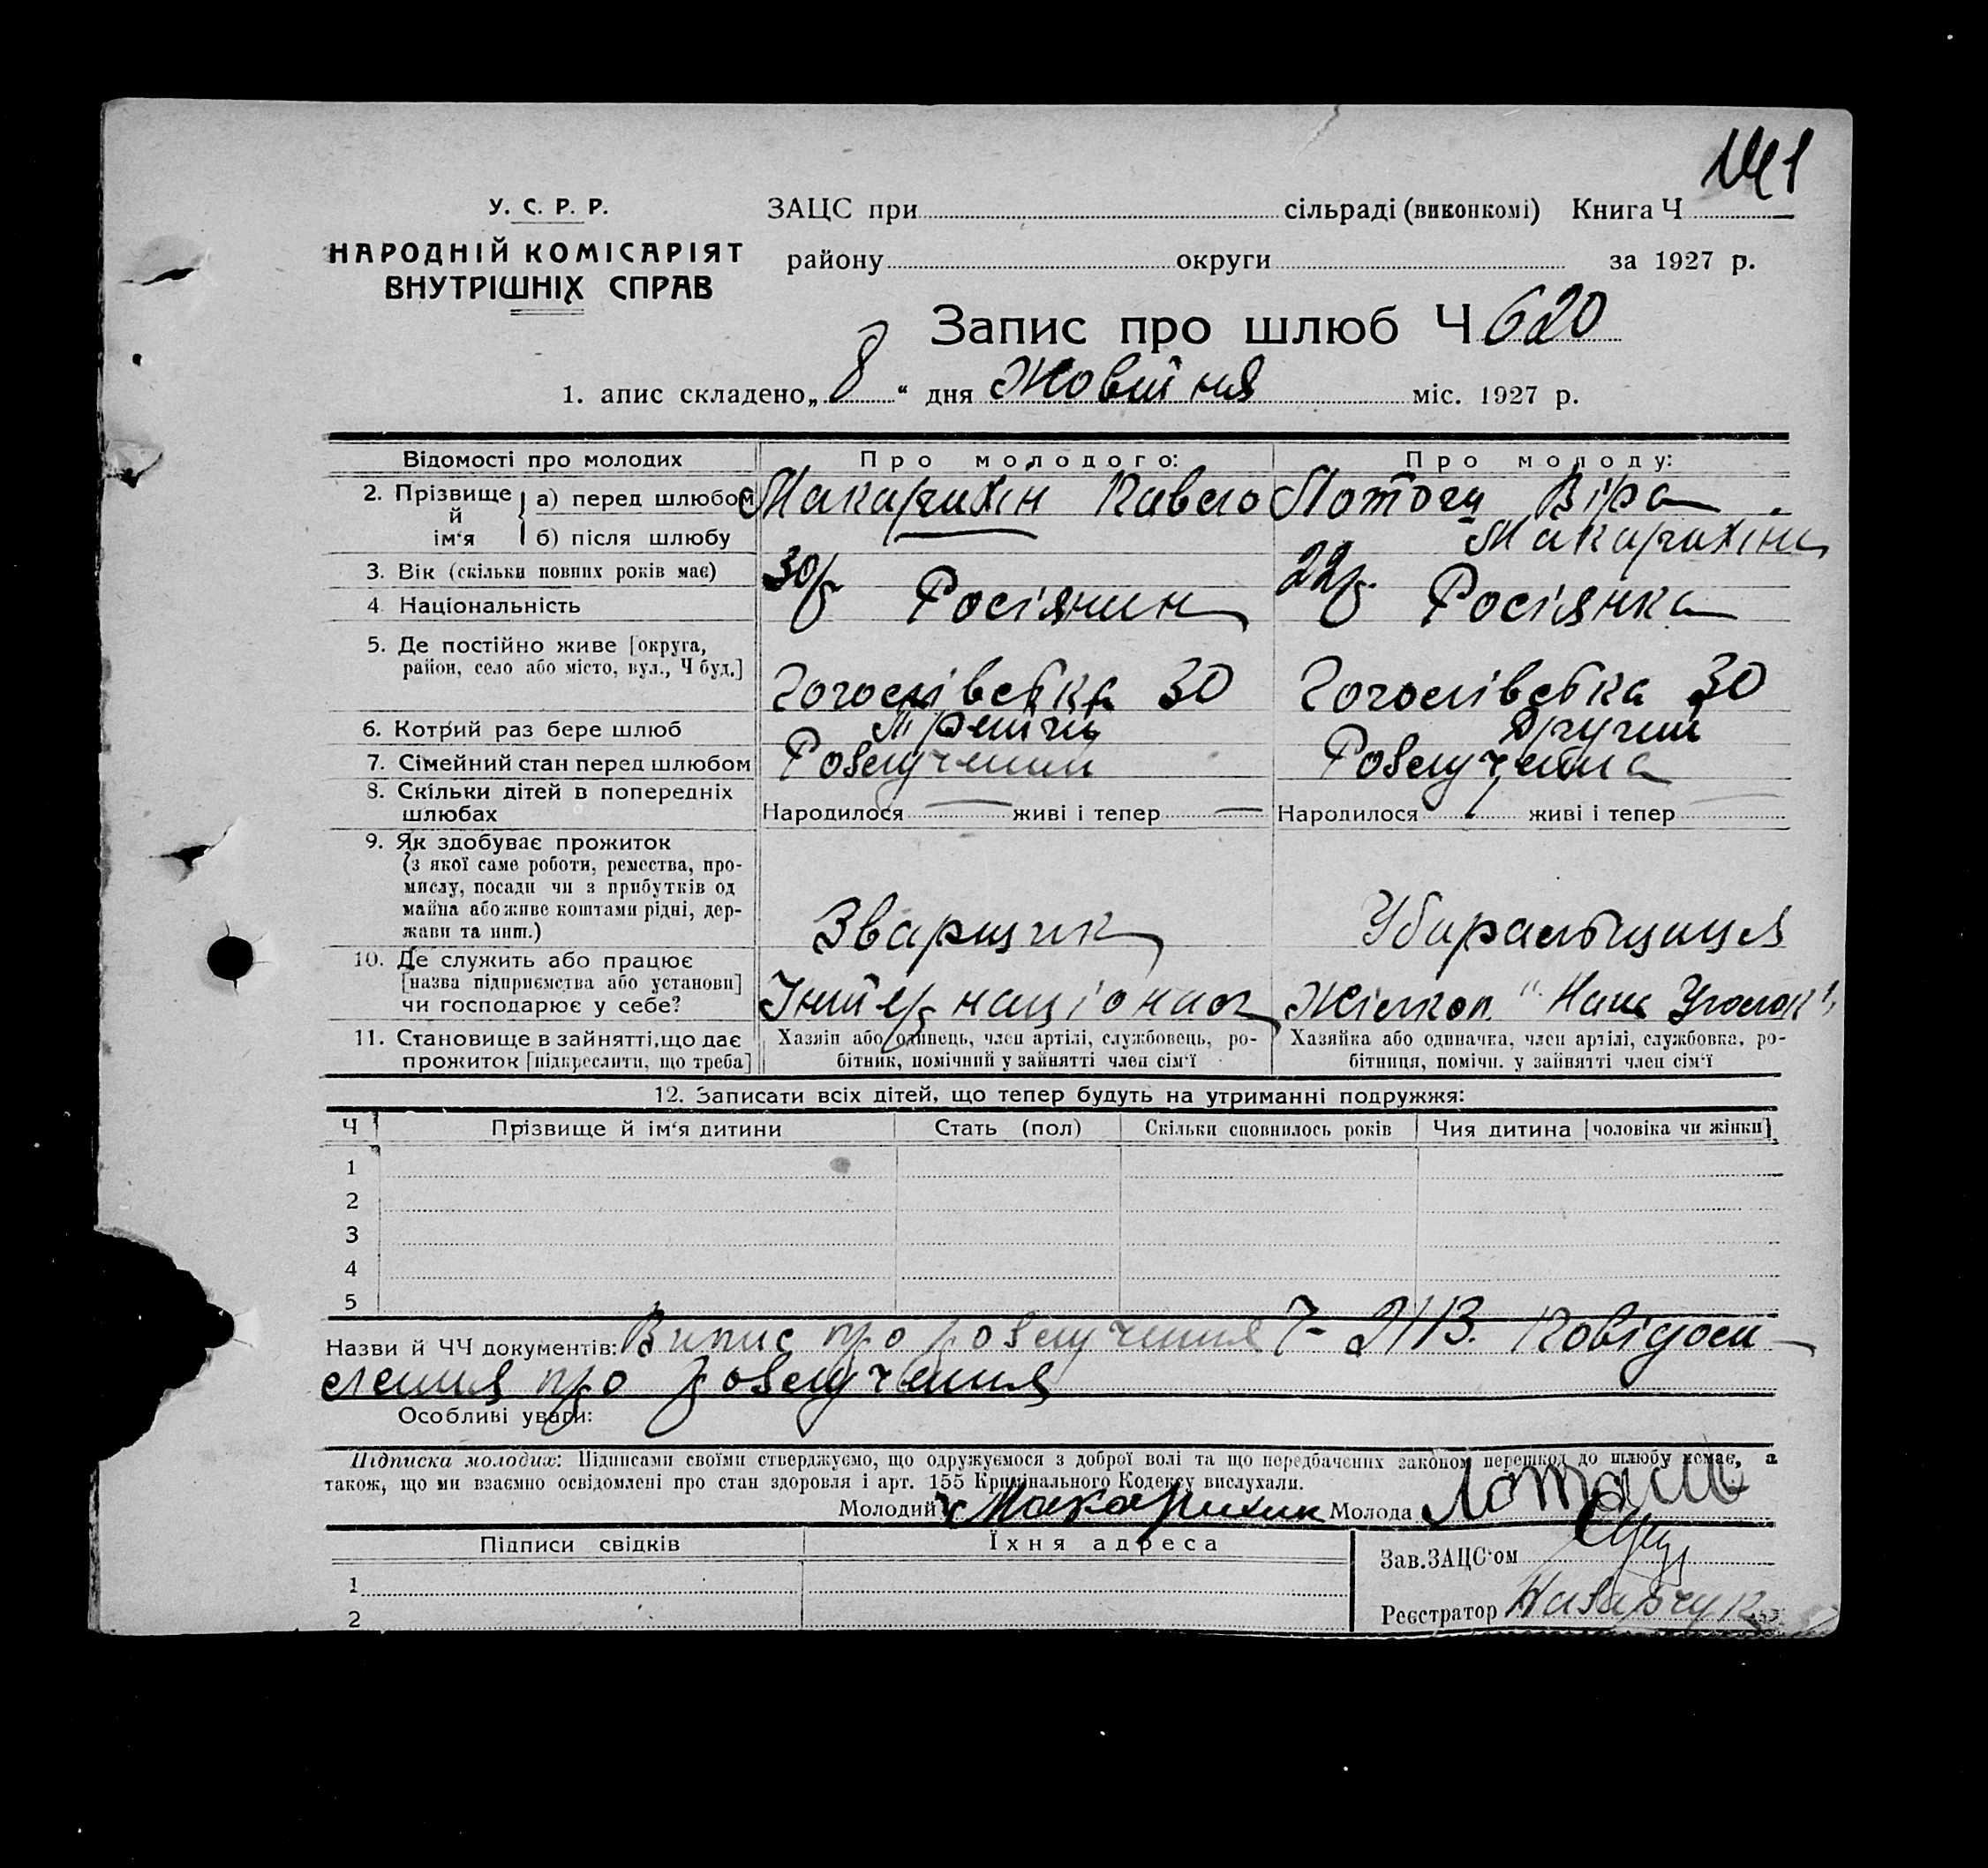 141
У. С. Р. Р.
НАРОДНІЙ КОМІСАРІЯТ
ВНУТРІШНІХ СПРАВ
ЗАЦС при сільраді (виконкомі) Книга Ч
району округи за 1927 р.
Запис про шлюб Ч 620
1. апис складено „ 8 “ дня Жовтня міс. 1927 р.
Відомості про молодих Про молодого: Про молоду:
2. Прізвище й ім‘я а) перед шлюбом Макарихін Павло Віра
б) після шлюбу Макарихіна
3. Вік (скільки повних років має) 30 р 22 р.
4 Національність Росіянин Росіянка
5. Де постійно живе [округа,
район, село або місто, вул., Ч буд.] 30 30
6. Котрий раз бере шлюб Третій Другий
7. Сімейний стан перед шлюбом Розлучений Розлучена
8. Скільки дітей в попередніх
шлюбах Народилося — живі і тепер — Народилося живі і тепер —
9. Як здобуває прожиток
(з якої саме роботи, ремества, про-
мислу, посади чи з прибутків од
майна або живе коштами рідні, дер-
жави та инш.) Зварщик Убиральщиця
10. Де служить або працює
[назва підприємства або установи]
чи господарює у себе? Інтернаціонал Жилкоп. "Наш Уголок"
11. Становище в зайнятті, що дає
прожиток [підкреслити, що треба]
Хазяїн або одинець, член артілі, службовець, ро-
бітник, помічний у зайнятті член сім‘ї
Хазяйка або одиначка, член артілі, службовка, ро-
бітниця, помічн. у зайнятті член сім‘ї
12. Записати всіх дітей, що тепер будуть на утриманні подружжя:
Ч Прізвище й ім‘я дитини Стать (пол) Скільки сповнилось років Чия дитина [чоловіка чи жінки]
1
2
3
4
5
Назви й ЧЧ документів: Випис про розлучення Ч- 2113. Повідом
лення про розлучення
Особливі уваги:
Підписка молодих: Підписами своїми стверджуємо, що одружуємося з доброї волі та що передбачених законом перешкод до шлюбу немає, а
також, що ми взаємно освідомлені про стан здоровля і арт. 155 Кримінального Кодексу вислухали.
Молодий Макарихин Молода
Підписи свідків Їхня адреса
1
2
Зав. ЗАЦС‘ом
Реєстратор